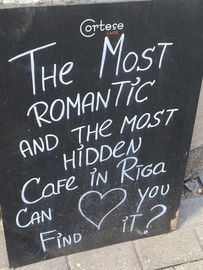 Cortese
CAFE
THE MOST
ROMANTIC
AND THE MOST
HIDDEN
CAFE IN RIGA
CAN YOU
FIND IT?